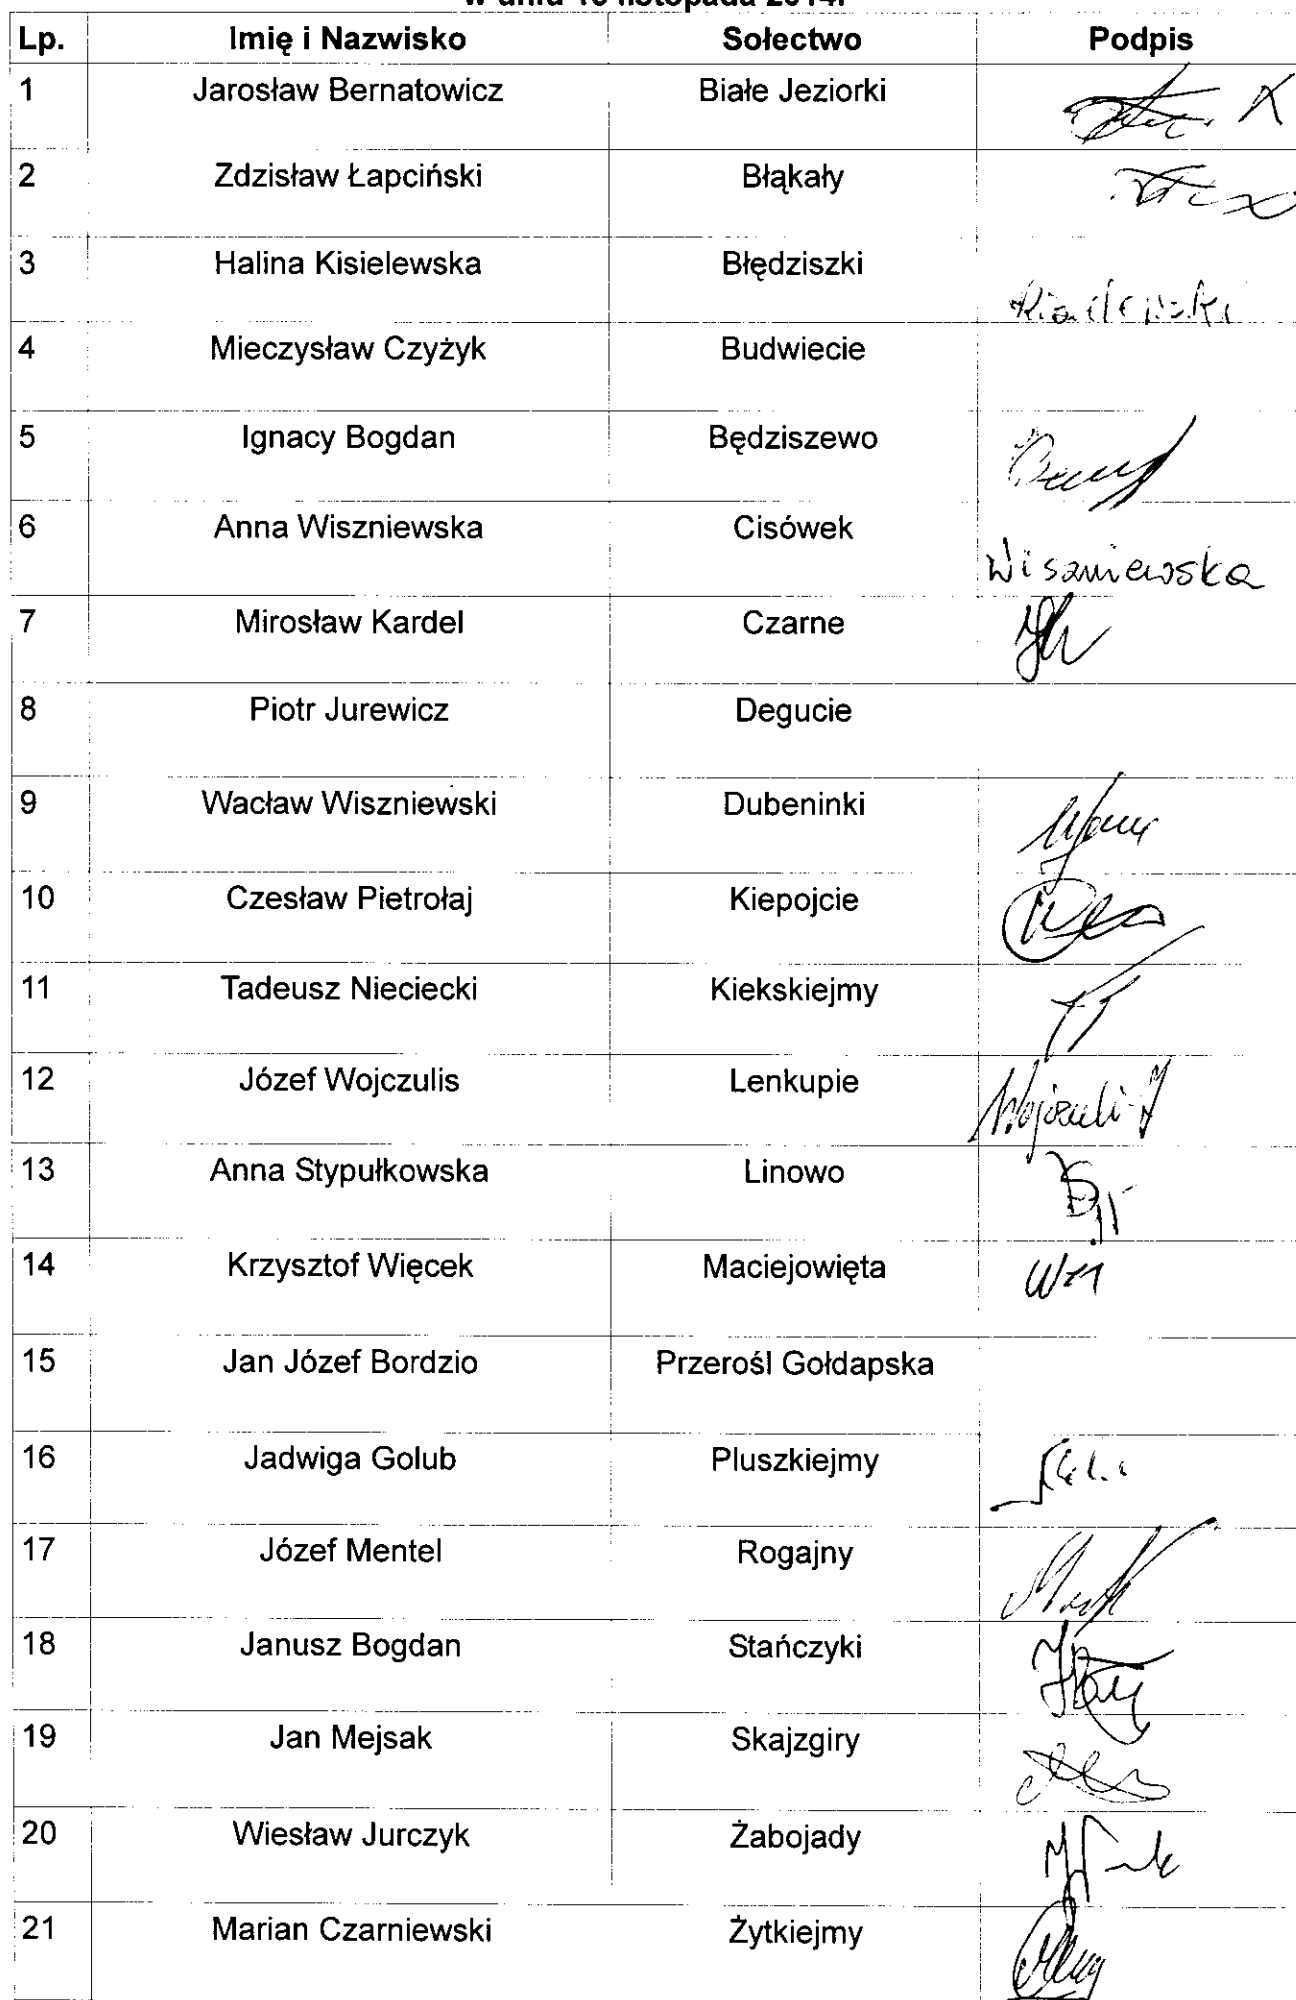 listopada 2014r
Lp. Imię i Nazwisko Sołectwo Podpis
1 Jarosław Bernatowicz Białe Jeziorki
2 Zdzisław Łapciński Błąkały
3 Halina Kisielewska Błędziszki
4 Mieczysław Czyżyk Budwiecie
5 Ignacy Bogdan Będziszewo
6 Anna Wiszniewska Cisówek Wiszniewska
7 Mirosław Kardel Czarne
8 Piotr Jurewicz Degucie
9 Wacław Wiszniewski Dubeninki
10 Czesław Pietrołaj Kiepojcie
11 Tadeusz Nieciecki Kiekskiejmy
12 Józef Wojczulis Lenkupie
13 Anna Stypułkowska Linowo
14 Krzysztof Więcek Maciejowięta
15 Jan Józef Bordzio Przerośl Gołdapska
16 Jadwiga Golub Pluszkiejmy
17 Józef Mentel Rogajny
18 Janusz Bogdan Stańczyki
19 Jan Mejsak Skajzgiry
20 Wiesław Jurczyk Żabojady
21 Marian Czarniewski Żytkiejmy